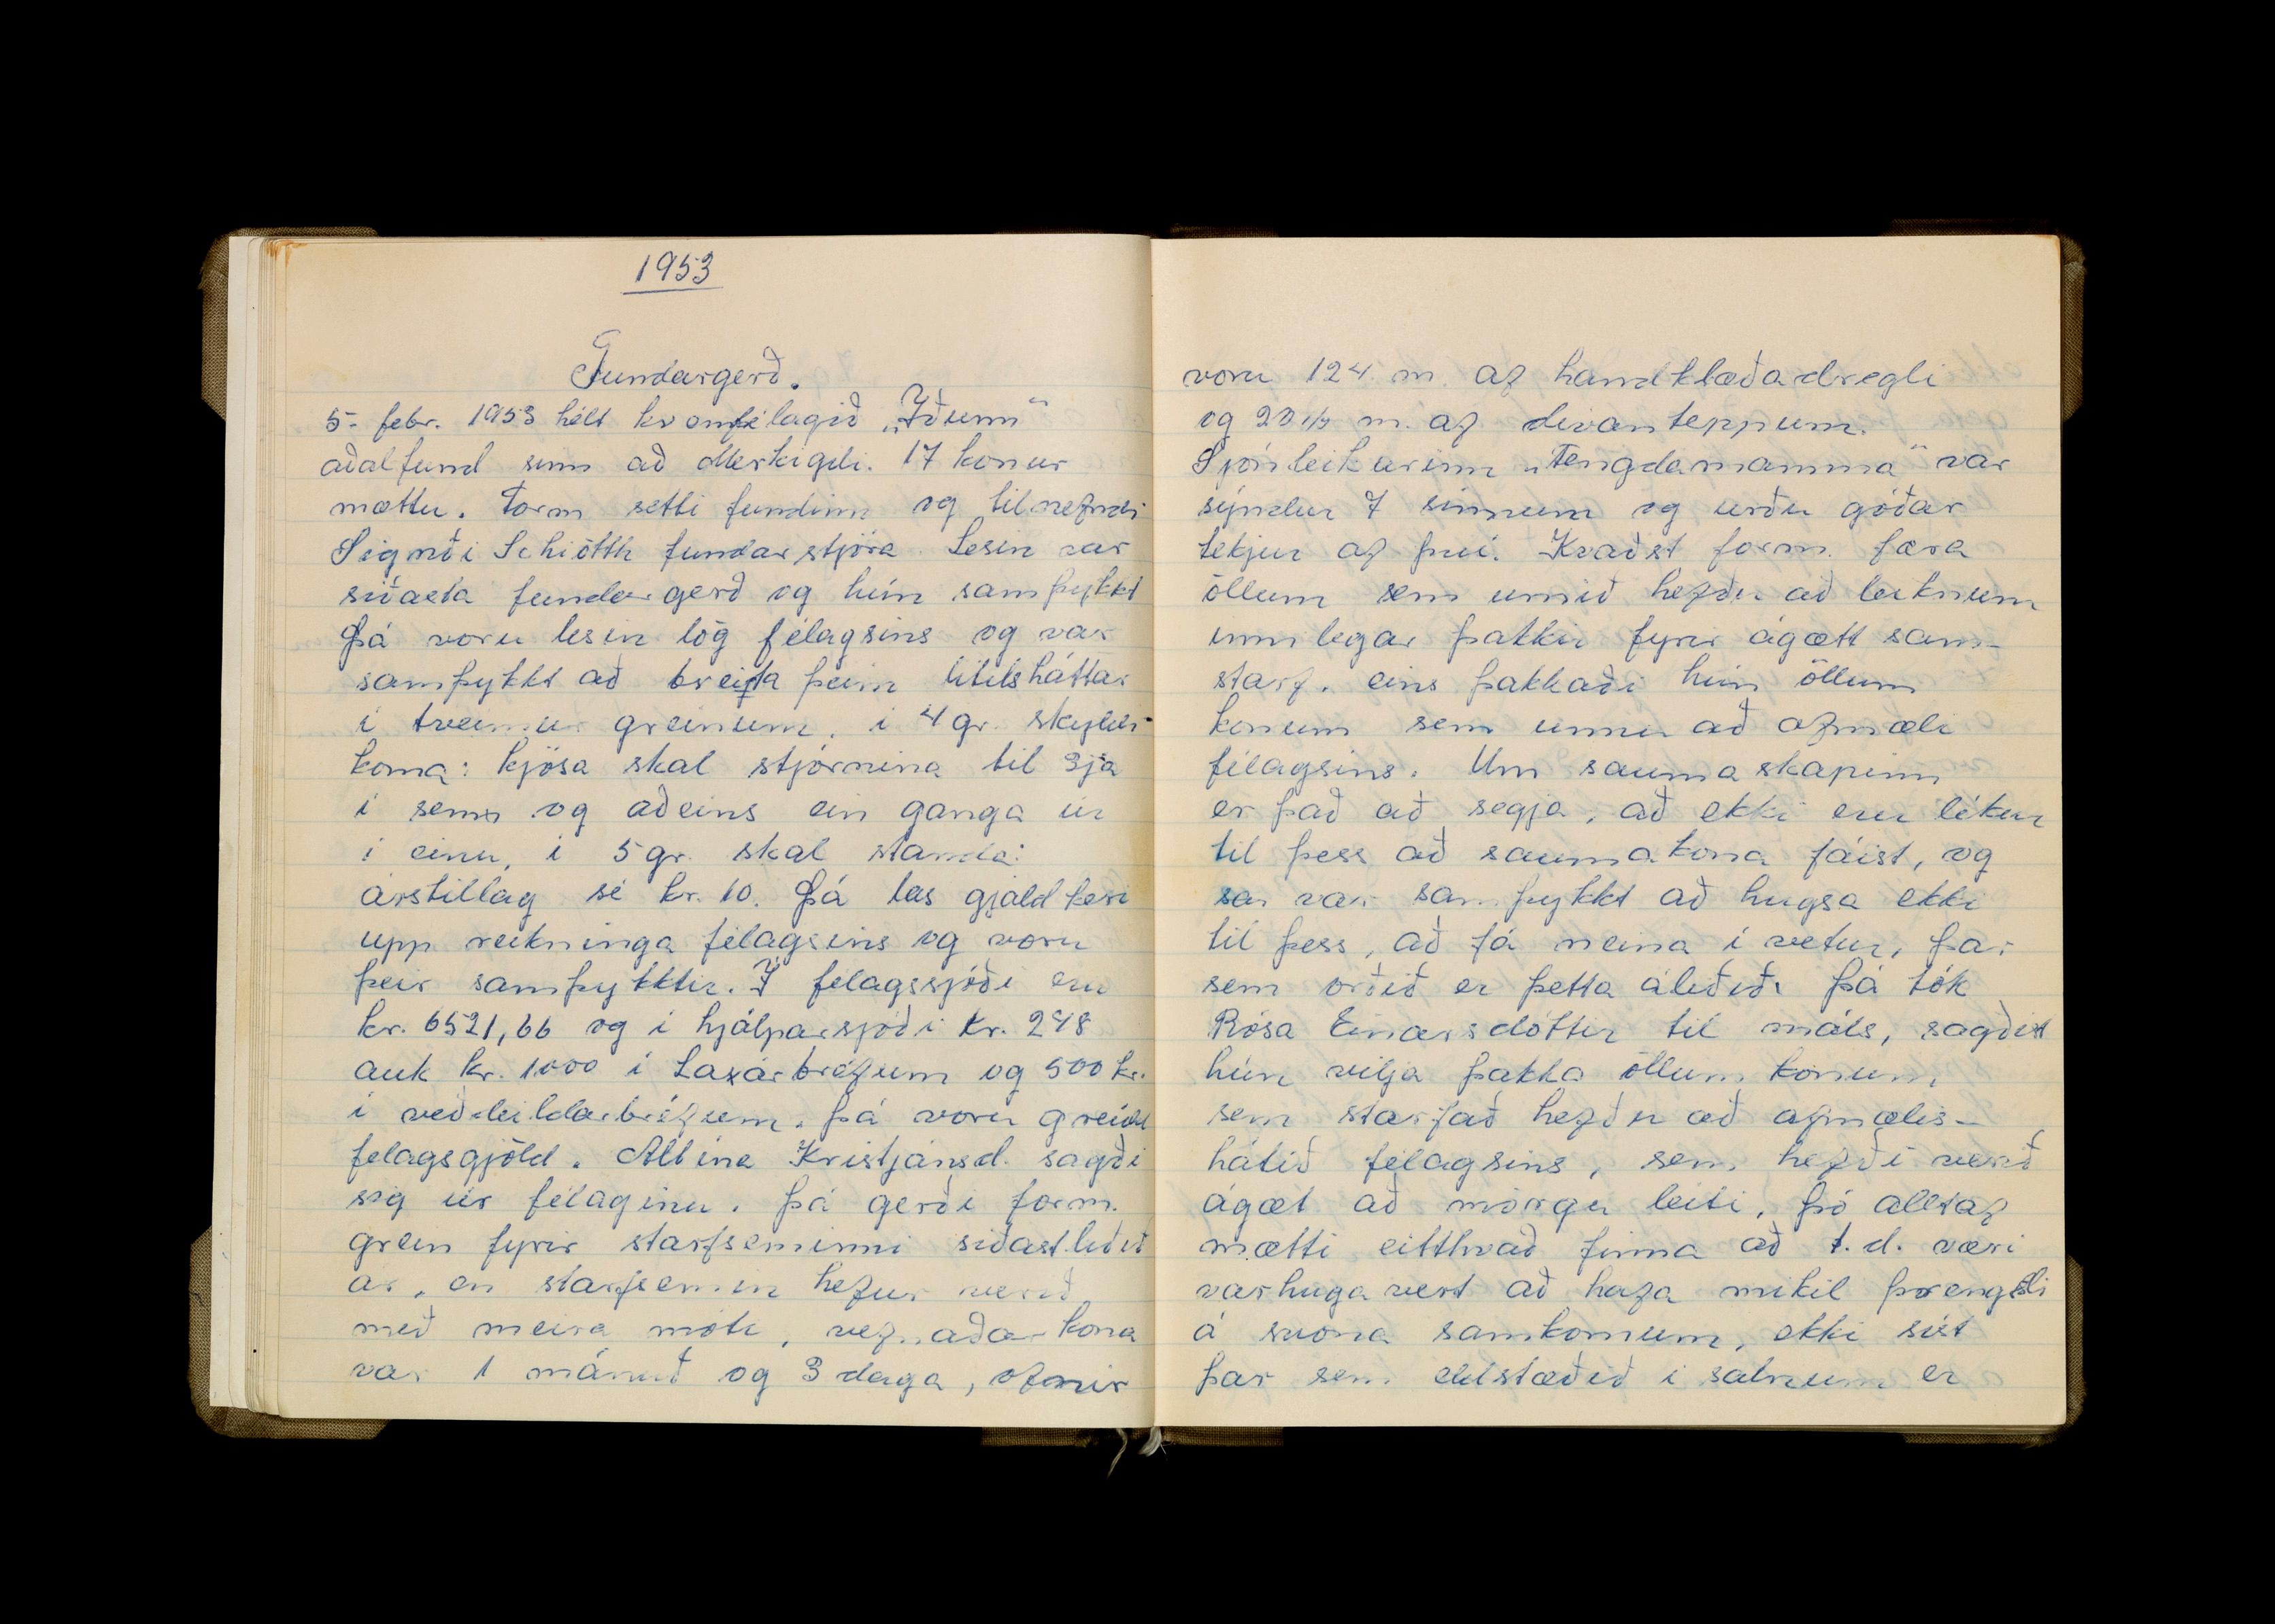 1953
Fundargerð.
5. febr. 1953 hélt kvenfélagið „Iðunn“
aðalfund sinn að Merkigili. 17 konur
mættu. Form setti fundinn og tilnefndi
Sigríði Schiötth fundarstjóra. Lesin var
síðasta fundargerð og hún samþykkt
Þá voru lesin lög félagsins og var
samþykkt að breyta þeim lítilsháttar
í tveimur greinum. í 4 gr. skyldi
koma: kjósa skal stjórnina til 3ja
í senn og aðeins ein ganga úr
í einu, í 5 gr. skal standa:
árstillag sé kr. 10. Þá las gjaldkeri
upp reikninga félagsins og voru
þeir samþykktir. Í félagssjóði eru
kr. 6521,66 og í hjálparsjóði kr. 248
auk kr. 1000 í Laxárbréfum og 500 kr.
í veðdeildarbréfum. Þá voru greidd
félagsgjöld. Albína Kristjánsd. sagði
sig úr félaginu. Þá gerði form.
grein fyrir starfseminni síðastliðið
ár, en starfsemin hefur verið
með meira móti, vefnaðarkona
var 1 mánuð og 3 daga, ofnir
voru 124 m. af handklæðadregli
og 20 1/2 m. af divanteppum.
Sjónleikurinn „Tengdamamma“ var
sýndur 7 sinnum og urðu góðar
tekjur af því. Kvaðst form. færa
öllum sem unnið hefðu að leiknum
innlegar þakkir fyrir ágætt sam-
starf. eins þakkaði hún öllum
konum sem unnu að afmæli
félagsins. Um saumaskapinn
er það að segja, að ekki eru líkur
til þess að saumakona fáist, og
var samþykkt að hugsa ekki
til þess, að fá neina í vetur, þar
sem orðið er þetta áliðið. Þá tók
Rósa Einarsdóttir til máls, sagðist
hún vilja þakka öllum konum,
sem starfað hefðu að afmælis-
hátíð félagsins, sem hefði verið
ágæt að mörgu leiti, þó alltaf
mætti eitthvað finna að t.d. væri
varhugavert að hafa mikil þrengsli
á svona samkomum, ekki síst
þar sem eldstæðið í salnum er